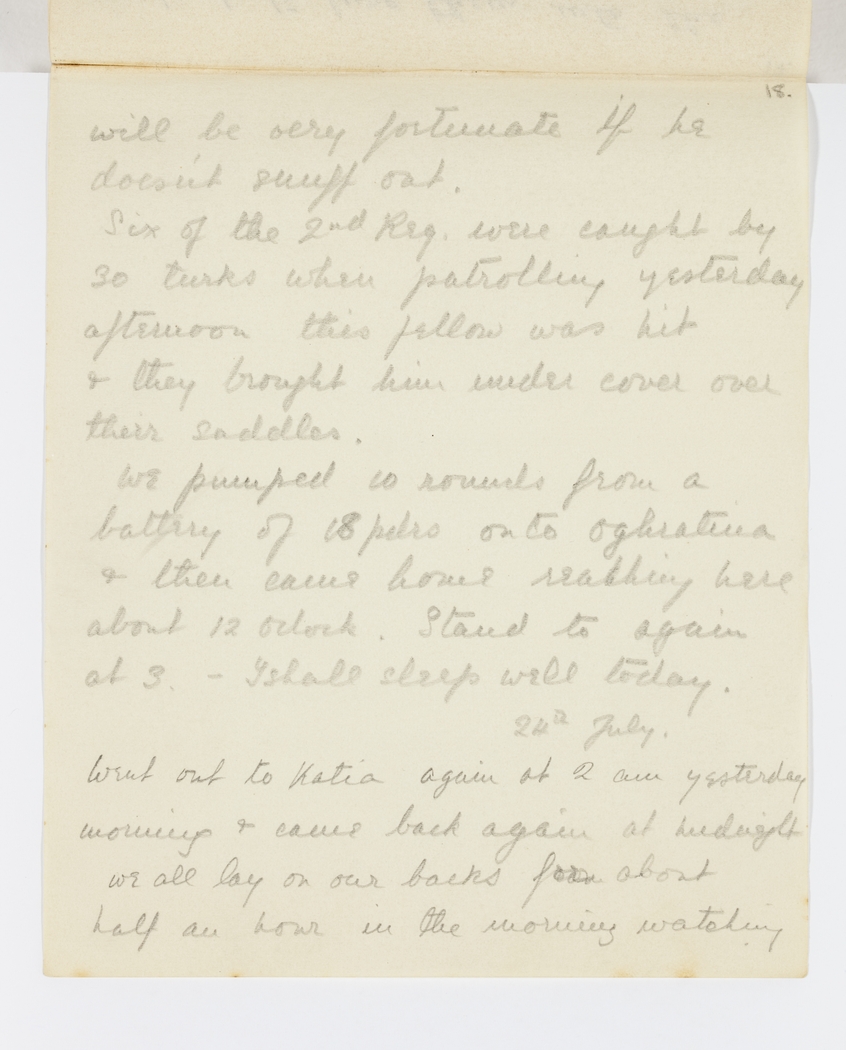 18.
will be very fortunate if he
doesn't snuff out.
Six of the 2nd Reg. were caught by
30 turks when patrolling yesterday
afternoon this fellow was hit
& they brought him under cover over
their saddles.
We pumped 10 rounds from a
battery of 18 pdrs onto Oghratina
& then came home reaching here
about 12 oclock. Stand to again
at 3. - I shall sleep well today.
24th July.
Went out to Katia again at 2 am yesterday
morning & came back again at midnight
we all lay on our backs for about
half an hour in the morning watching